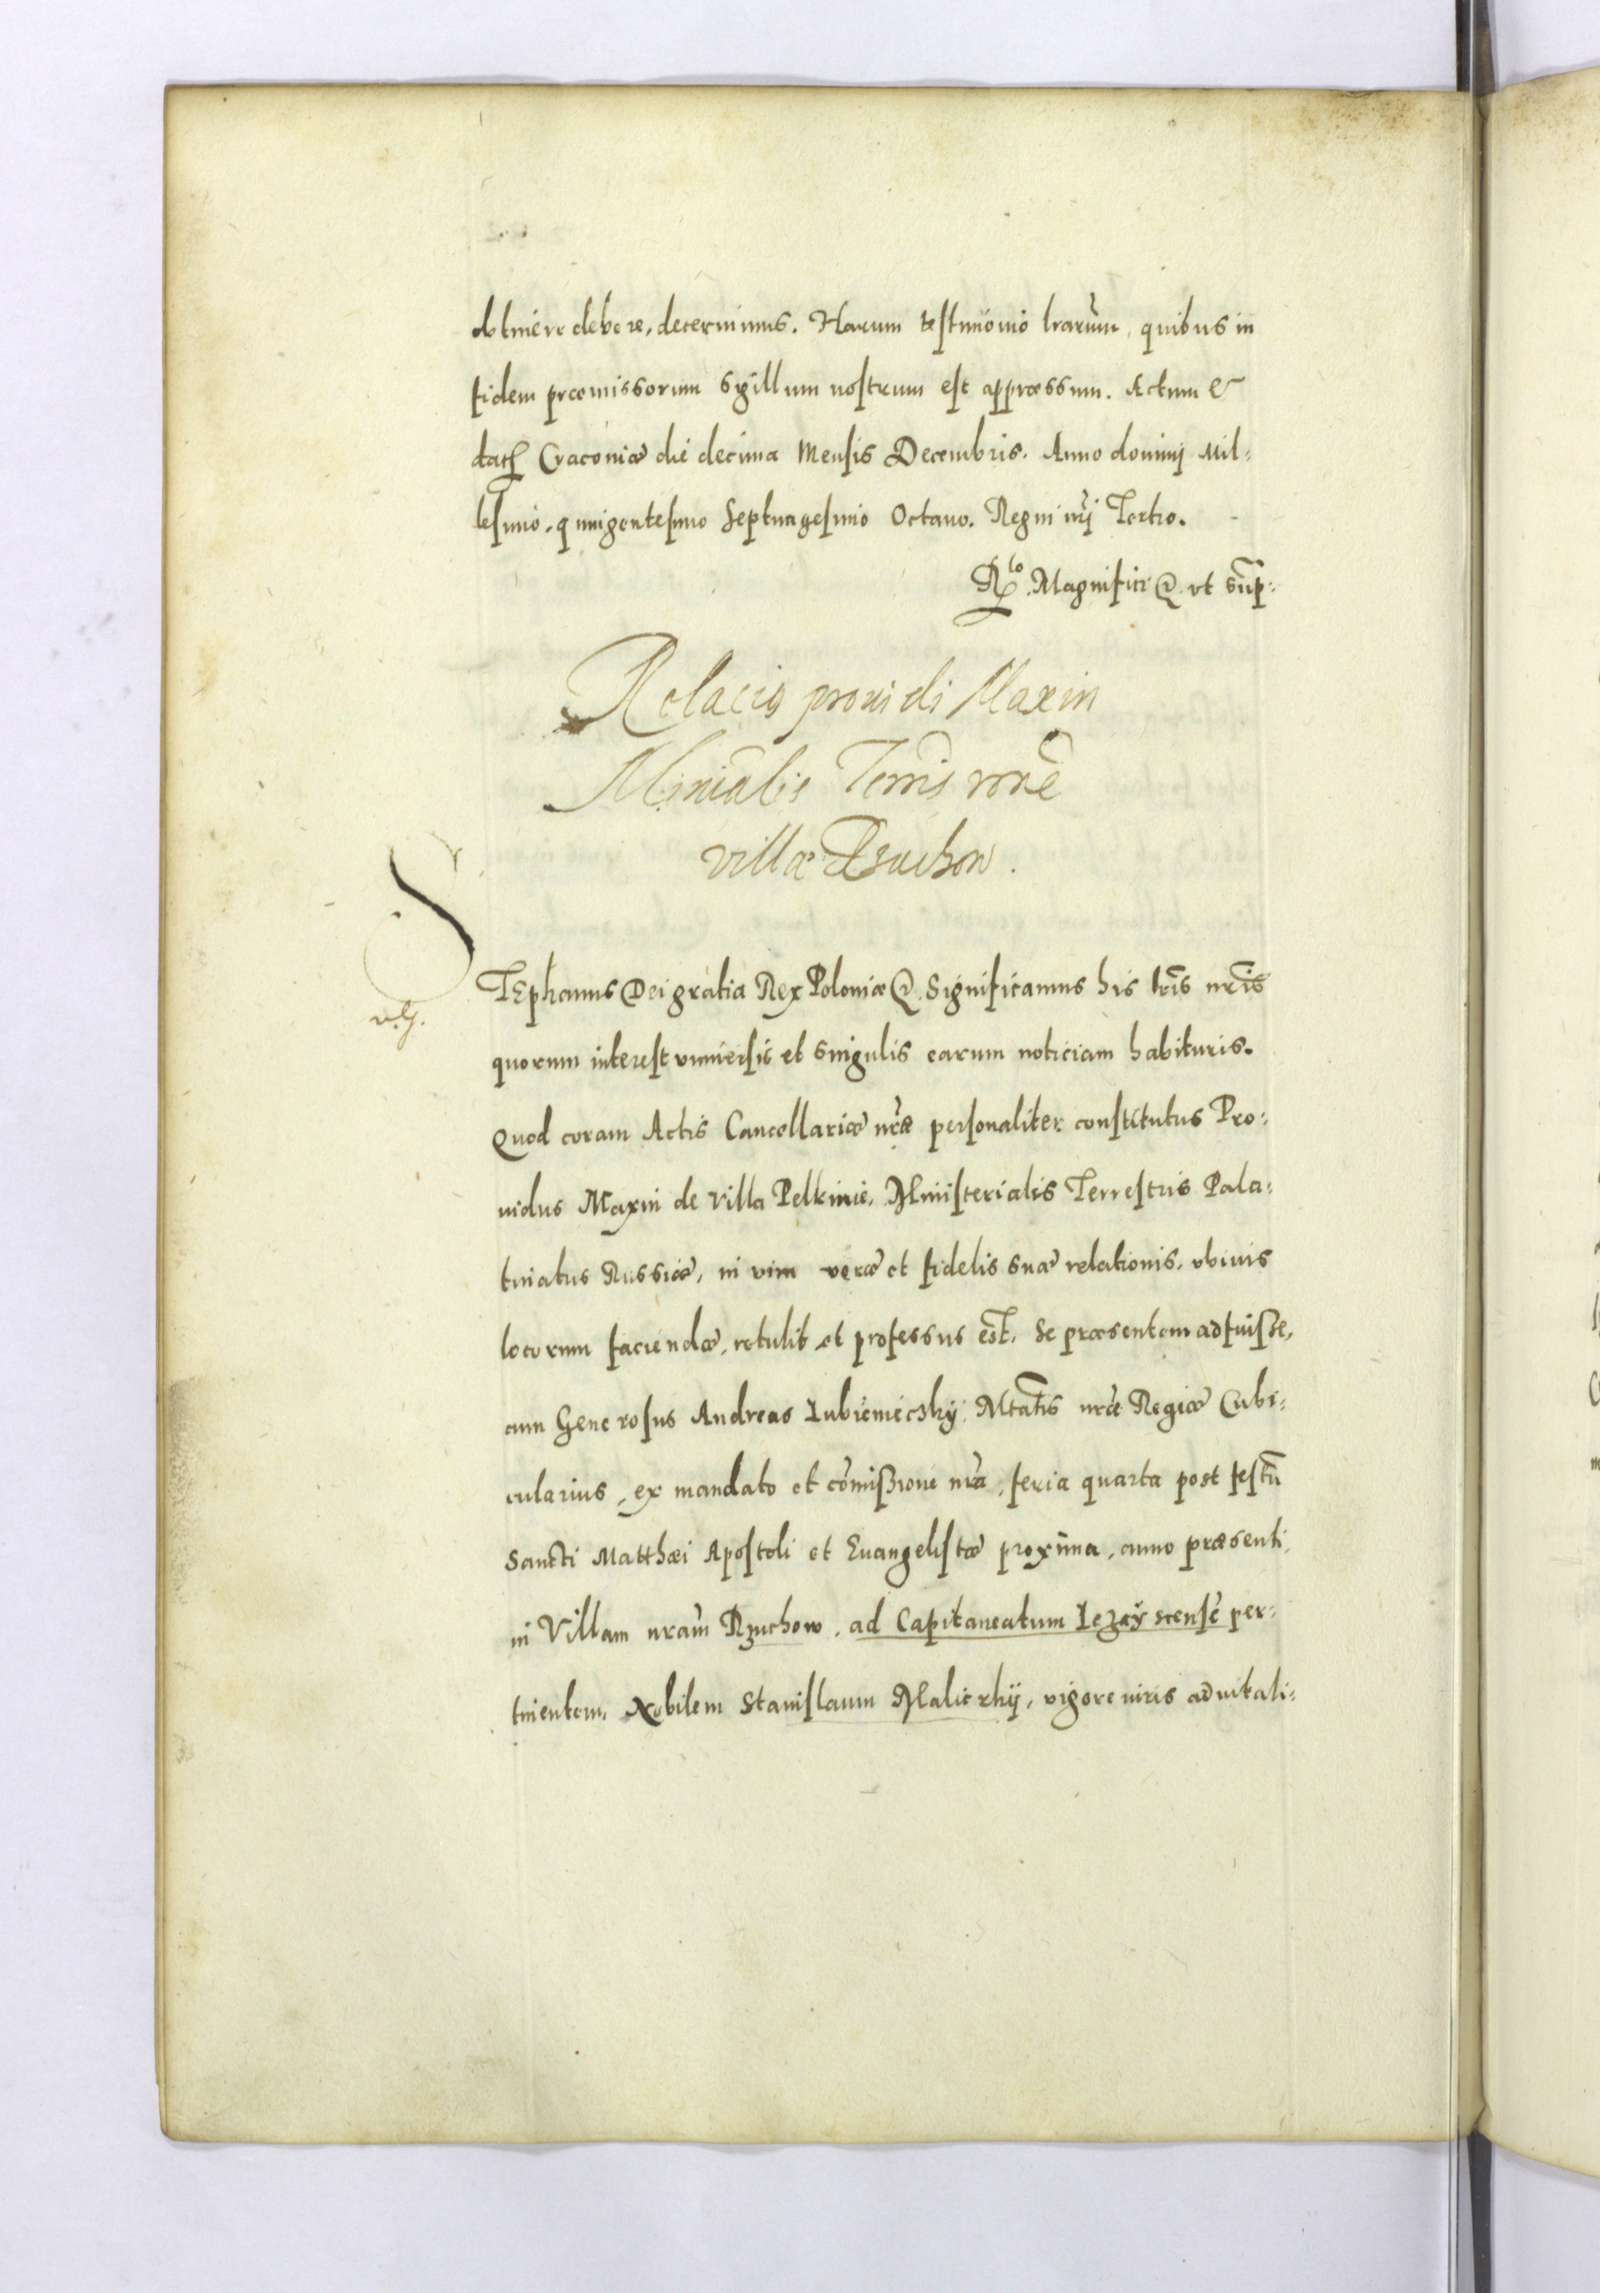 obtinere debere, decernimus. Harum testimonio lrarum, quibus in
fidem præmissorum sigillum nostrum est appressum. Actum &
dat Cracoviæ die decima Mensis Decembris. Anno domini Mil-
lesimo, quingentesimo Septuagesimo Octauo. Regni nri Tertio.
Rlo. Magnifici & vt sup:
Relacio prouidi Maxin
Minialis Terris rone
villæ Rzuchow.
STEphanus Dei gratia Rex Poloniæ & Significamus his lris nris
quorum interest vniuersis et singulis earum noticiam habituris.
Quod coram Actis Cancellariæ nræ personaliter constitutus Pro-
uidus Maxin de Villa Pelkinie, Ministerialis Terrestris Pala-
tinatus Russiæ, in vim veræ et fidelis suæ relationis, vbiuis
locorum faciendæ, retulit et professus est, Se præsentem adfuisse,
cum Generosus Andreas Lubienieczky, Mtatis nræ Regiæ Cubi-
cularius, ex mandato et comissione nra, feria quarta post festu
Sancti Matthæi Apostoli et Euangelistæ proxima, anno præsenti,
in Villam nram Rzuchow, ad Capitaneatum Lezayscense per-
tinentem, Nobilem Stanislaum Malickij, vigore iuris aduitali-